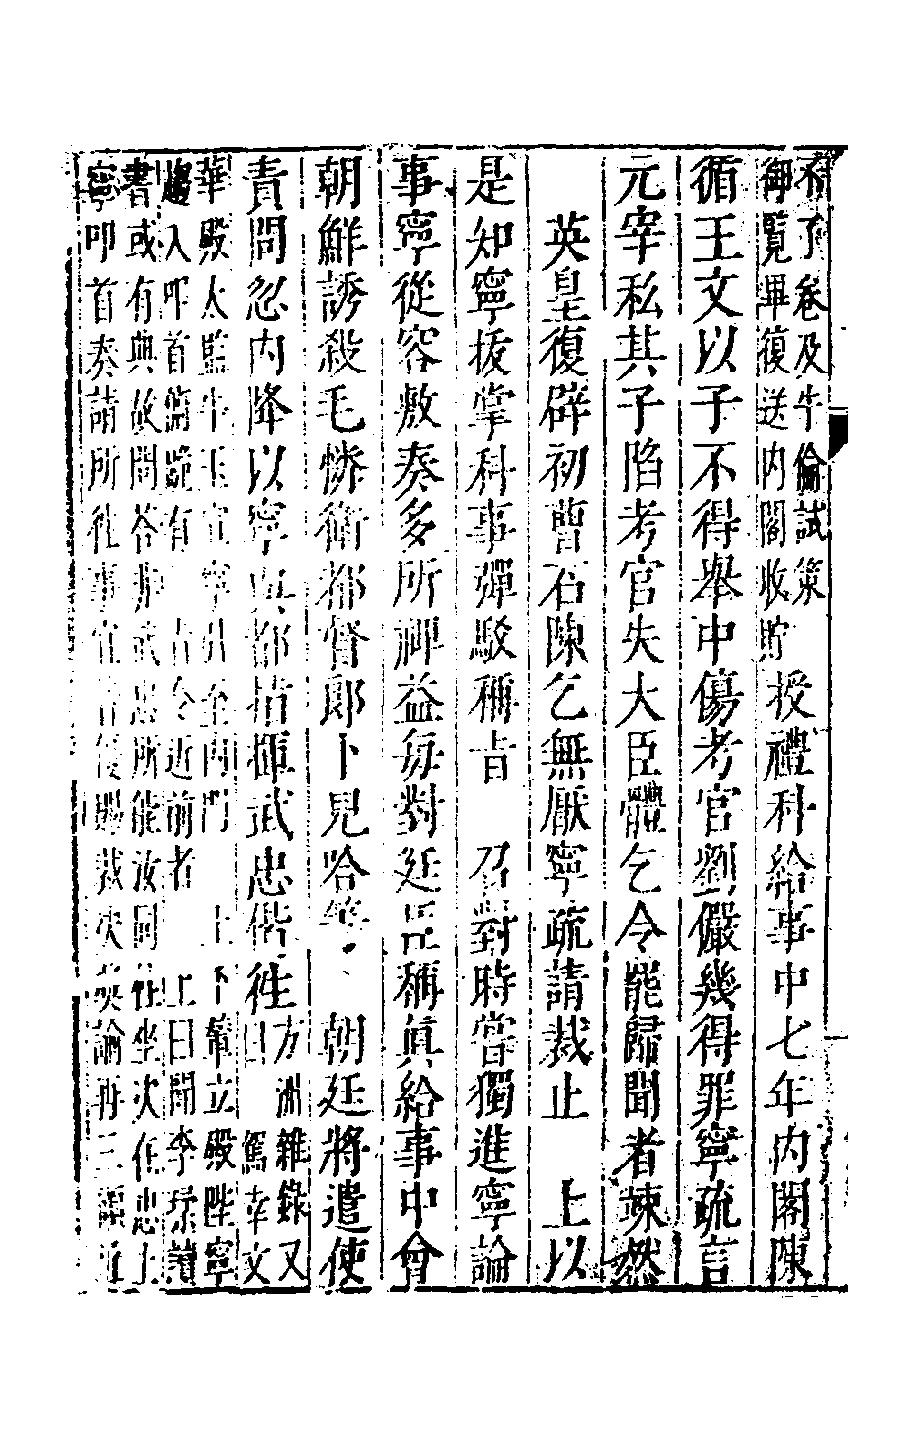 禾子卷及牛倫試策
御覽畢復送內閣收貯
授禮科給事中七年内閣陳
循王文以子不得舉中傷考官劉儼幾得罪寧疏言
元宰私其子陷考官失大臣體乞令罷歸聞者竦然
英皇復辟初曹石陳乞無厭寧疏請裁止　上以
是知寧拔掌科事彈駁稱旨　召對時嘗獨進寧論
事寧從容敷奏多所裨益每對廷臣稱眞給事中會
朝鮮誘殺毛憐衛都督郎卜兒哈等　朝廷將遣使
責問忽内降以寧與都指揮武忠偕往
方洲雜錄又
曰　駕幸文
華殿太監牛玉宣寧引至内門　上下輦立殿陛寧
趨入叩首俯跪有　旨令近前者　上曰聞李琮讀
書或有典故問答非武忠所能汝同往坐次在忠上
寧叩首奏請所往事宜　裁決　諭再三　近